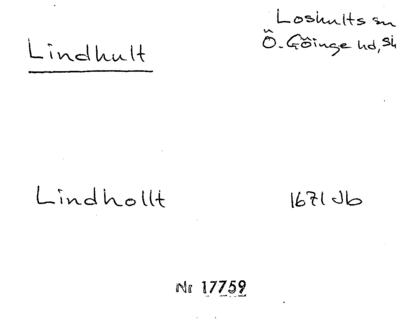 Loshults sn
Lindhult
Ö. Göinge hd, Sk
Lindhollt 1671 Jb
Nr 17759